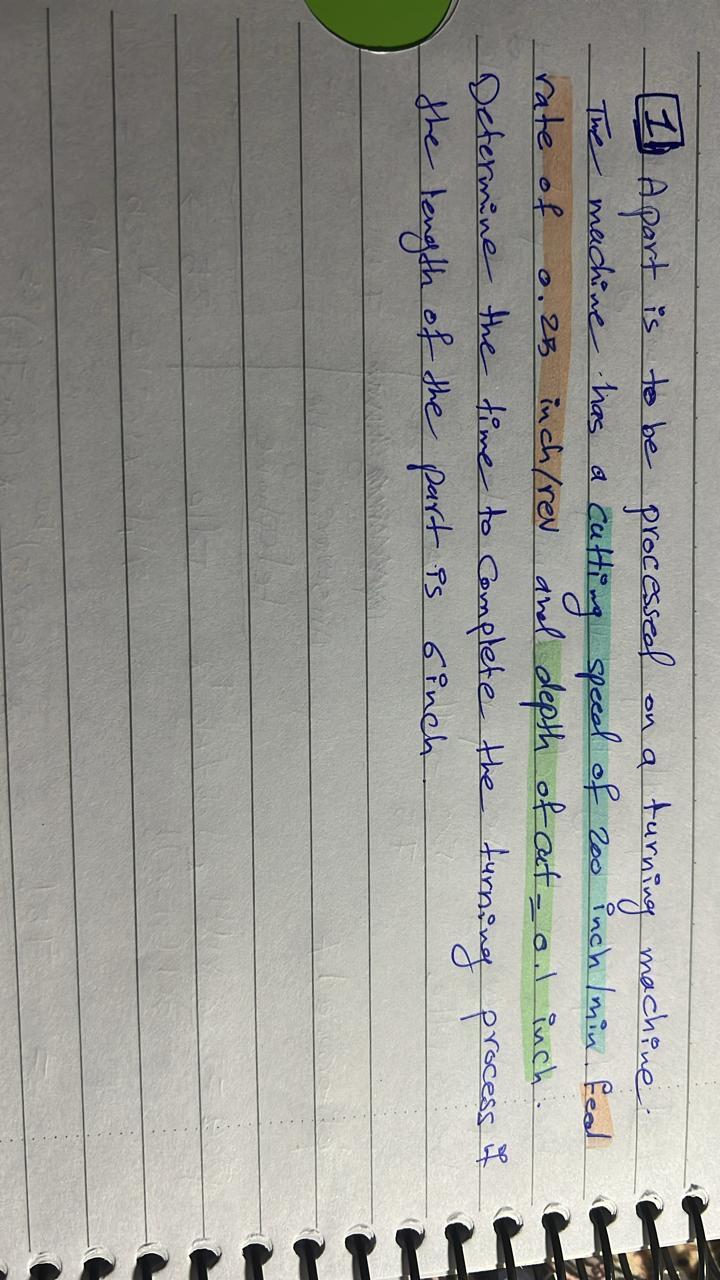 1 A part is to be processed on a turning machine.
The machine has a cutting speed of 200 inch/min. feed
rate of 0.25 inch/rev and depth of cut = 0.1 inch.
Determine the time to complete the turning process if
the length of the part is 6 inch.